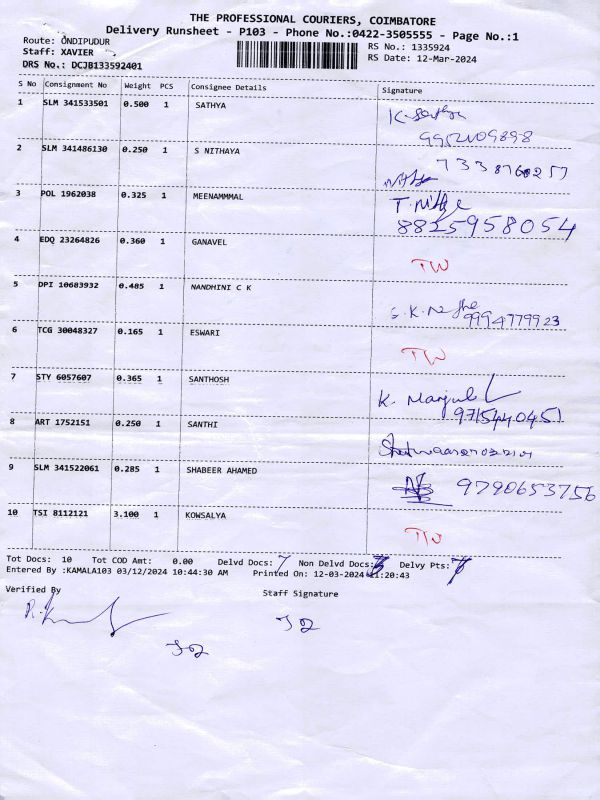 THE PROFESSIONAL COURIERS, COIMBATORE
Delivery Runsheet - P103 - Phone No.:0422-3505555 - Page No.:1
Route: ONDIPUDUR RS No.: 1335924
Staff: XAVIER RS Date: 12-Mar-2024
DRS No.: DCJB133592401
S No Consignment No Weight PCS Consignee Details Signature
1 SLM 341533501 0.500 1 SATHYA K.Sathya
9952109898
2 SLM 341486130 0.250 1 S NITHAYA
Nithya
3 POL 1962038 0.325 1 MEENAMMMAL
8825958054
4 EDQ 23264826 0.360 1 GANAVEL
TW
5 DPI 10683932 0.485 1 NANDHINI C K
9994779923
6 TCG 30048327 0.165 1 ESWARI
TW
7 STY 6057607 0.365 1 SANTHOSH K. Manjul
9715440451
8 ART 1752151 0.250 1 SANTHI
9 SLM 341522061 0.285 1 SHABEER AHAMED
9790653756
10 TSI 8112121 3.100 1 KOWSALYA
TW
Tot Docs: 10 Tot COD Amt: 0.00 Delvd Docs: 7 Non Delvd Docs: 3 Delvy Pts: 7
Entered By :KAMALA103 03/12/2024 10:44:30 AM Printed On: 12-03-2024 11:20:43
Verified By Staff Signature